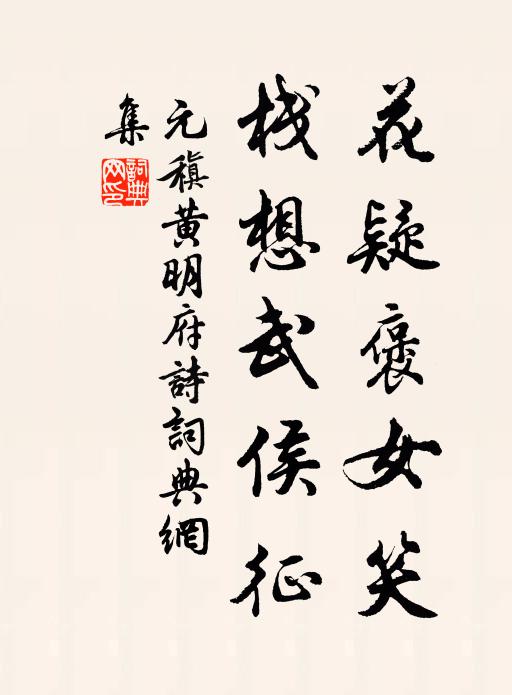 花疑褒女笑
栈想武侯征
元稹黄明府詩詞典網
集
詞典
网印